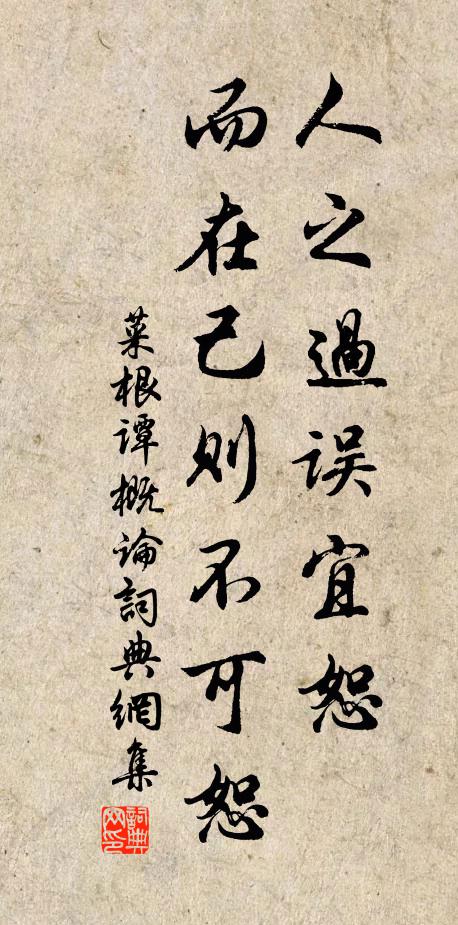 人之過误宜恕
而在己则不可恕
菜根谭概論詞典網集
詞典网印